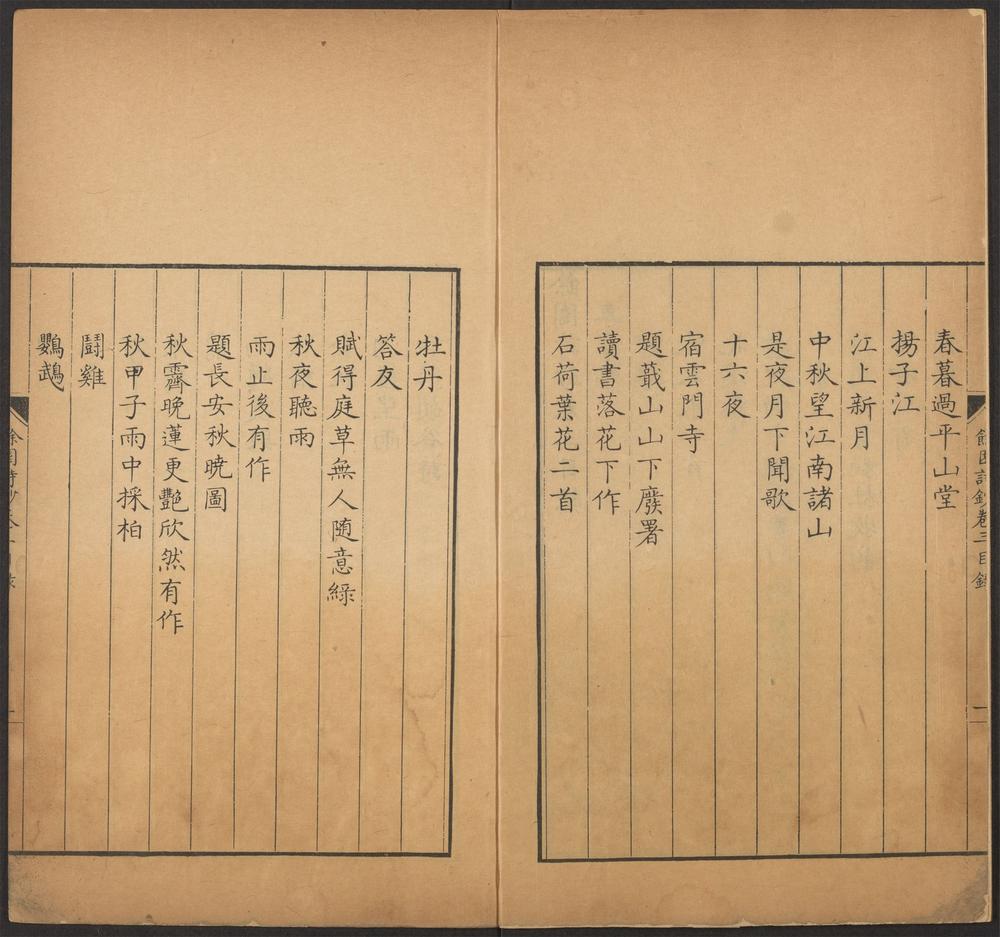 春暮過平山堂
揚子江
江上新月
中秋望江南諸山
是夜月下聞歌
十六夜
宿雲門寺
題蕺山山下廢署
讀書落花下作
石荷葉花二首
牡丹
答友
賦得庭草無人随意綠
秋夜聽雨
雨止後有作
題長安秋曉圖
秋霽晚蓮更艷欣然有作
秋甲子雨中採柏
鬪雞
鸚鵡